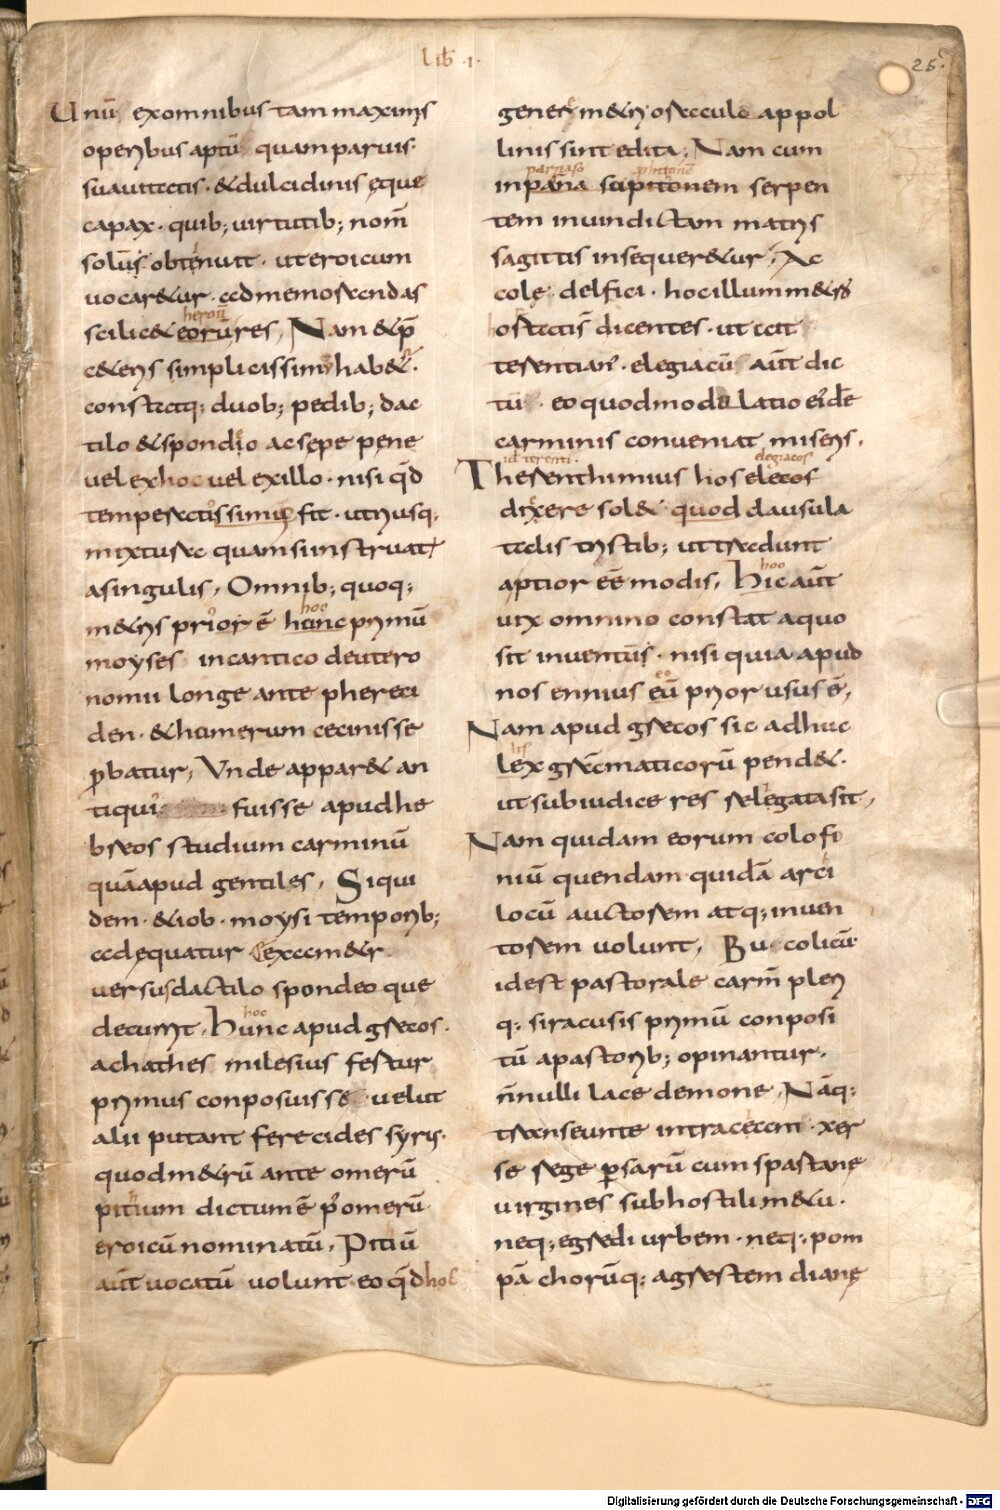 Lib̄ ·1·
25.
Unū exomnibus tam maximis
operibus aptū quam parvis·
suauitatis · &dulcidinis ęque
capax · quib; uirtutib; nom̄
solus obtenuit · uteroicum
uocar&ur · admemorandas
heroū
scilic& eorū res, Nam &p̄
c&eris simplicissim hab&ur.
constatq; duob; pedib; dac
tilo &spondio ac sępe pene
uel ex hoc uel exillo · nisi qd̄
temperatissimus fit · utriusq;
mixturae quamsi instruat
asingulis, Omnib; quoq;
hoc
m&ris prior ē hanc primū
moyses incantico deutero
nomii longe ante phereci
den · &humerum cecinisse
probatur, Unde appar& an
tiqui fuisse apud he
breos studium carminū
quāapud gentiles, Siqui
dem · &iob · moysi temporib;
adęquatur exam&r
uersu dactilo spondeo que
hoc
decurrit, Hunc apud grecos·
achathes milesius fertur
primus conposuisse · uelut
alii putant ferecides syrus·
quod m&rū ante omerū
pitium dictum ē p̄ omerū
eroicū nominatū, Pitiū
aūt uocatū uolunt eo qd̄ hoc
genere m&ri oracula appol
linis sint edita; Nam cum
parnaso pintonē
inpana scipitonem serpen
tem inuindictam matris
sagittis insequer&ur, Ac
colę delfici · hocillum m&ro
ortatis dicentes · ut ait
terentian · elegiacū aūt dic
tū · eo quod modulatio eide
carminis conueniat miseris,
id terenti· elegiacos
Therenthimius hos elecos
dixere sol& quod clausula
talis tristib; ut tradunt
hoc
aptior eē modis, Hic aūt
uix omnino constat aquo
sit inuentus · nisi quia apud
eo
nos ennius eū prior usus ē,
Nam apud grecos sic adhuc
lis
lex gramaticorū pend&·
ut subiudice res relegata sit,
Nam quidam eorum colofi
niū quendam quidā arci
locū auctorem atq; inuen
torem uolunt, Bucolicū
idest pastorale carm̄ pleri
q; siracusis primū conposi
tū apastorib; opinantur,
n̄nulli lace demone, Nāq;
transeunte intraceam · xer
se rege persarū cum spartanę
uirgines subhostili m&u·
neq; egredi urbem · neq; pom
pā chorūq; agrestem dianę
Digitalisierung gefördert durch die Deutsche Forschungsgemeinschaft - DFG